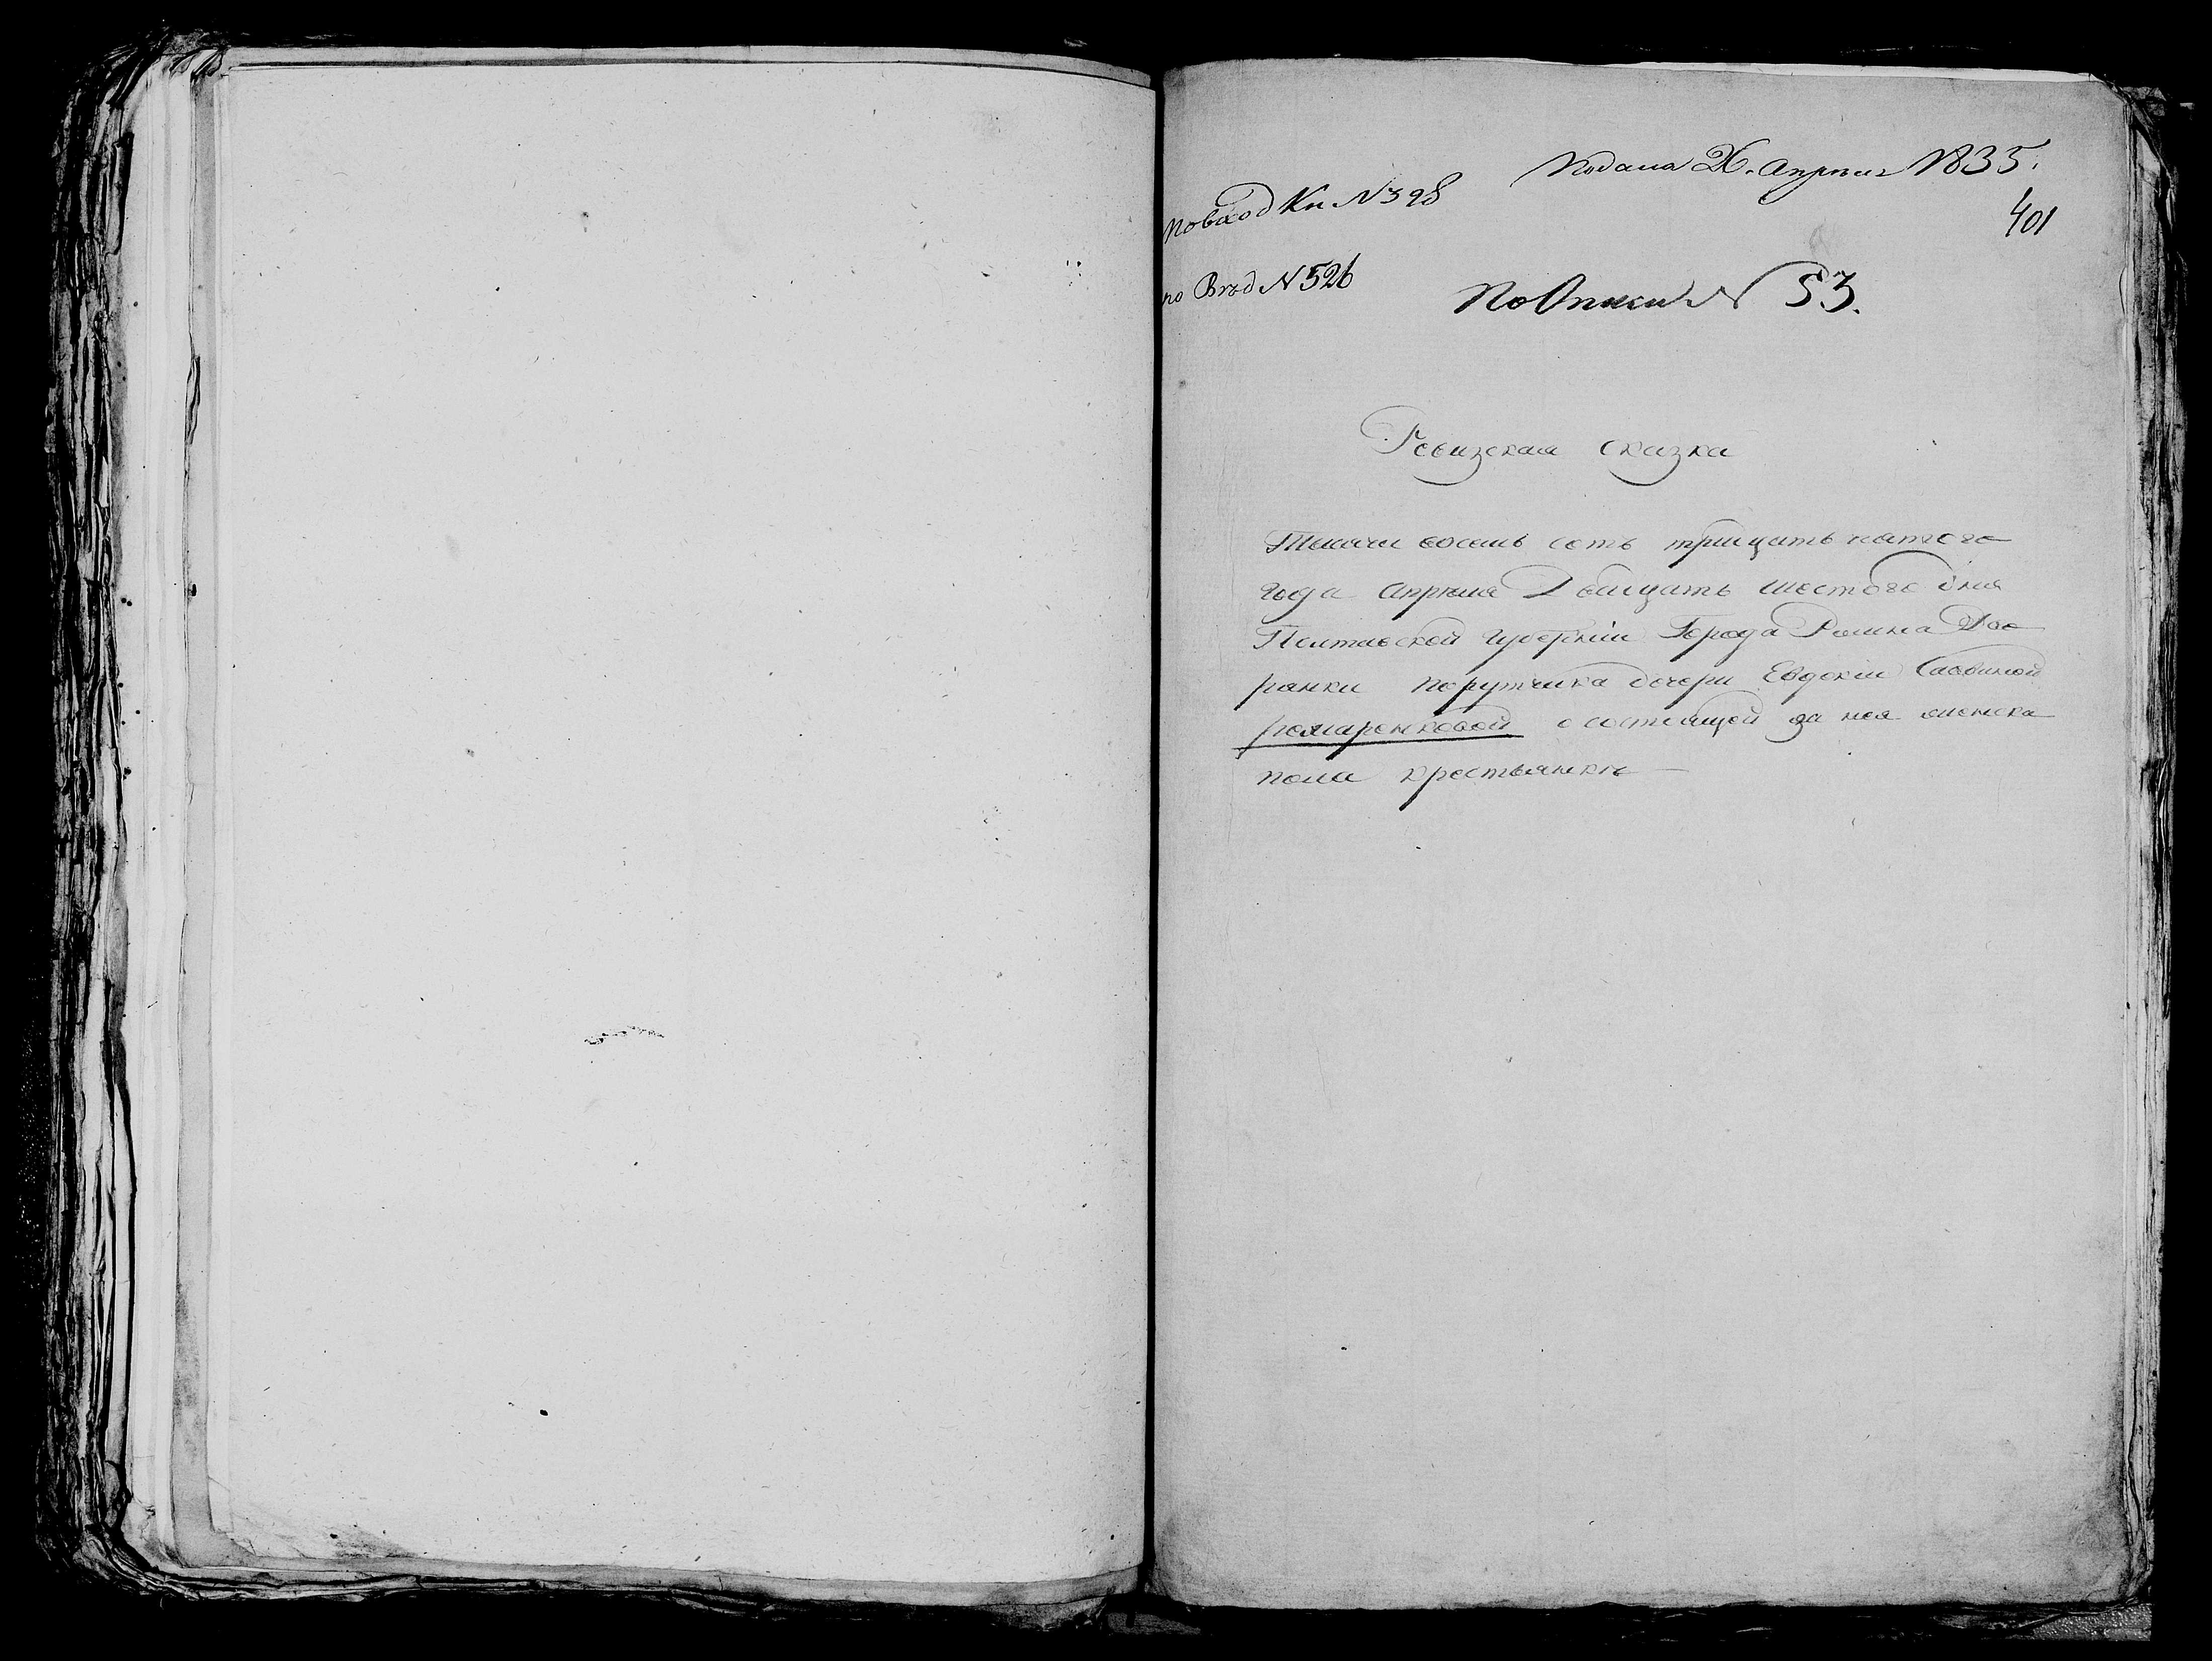 Подана 26. апреля 1835.
По вход Кн. N 398
401
по Вѣд N 526
По Описи N 53.
Ревизская сказка
Тысячи восемь сотъ тридцать пятого
года апреля Двадцать шестого дня
Полтавской губернiи Города Ромна Дво
рянки порутчика дочери Евдокiи Саввиной
ромаренковой о состоящей за нея женска
пола крестьянки